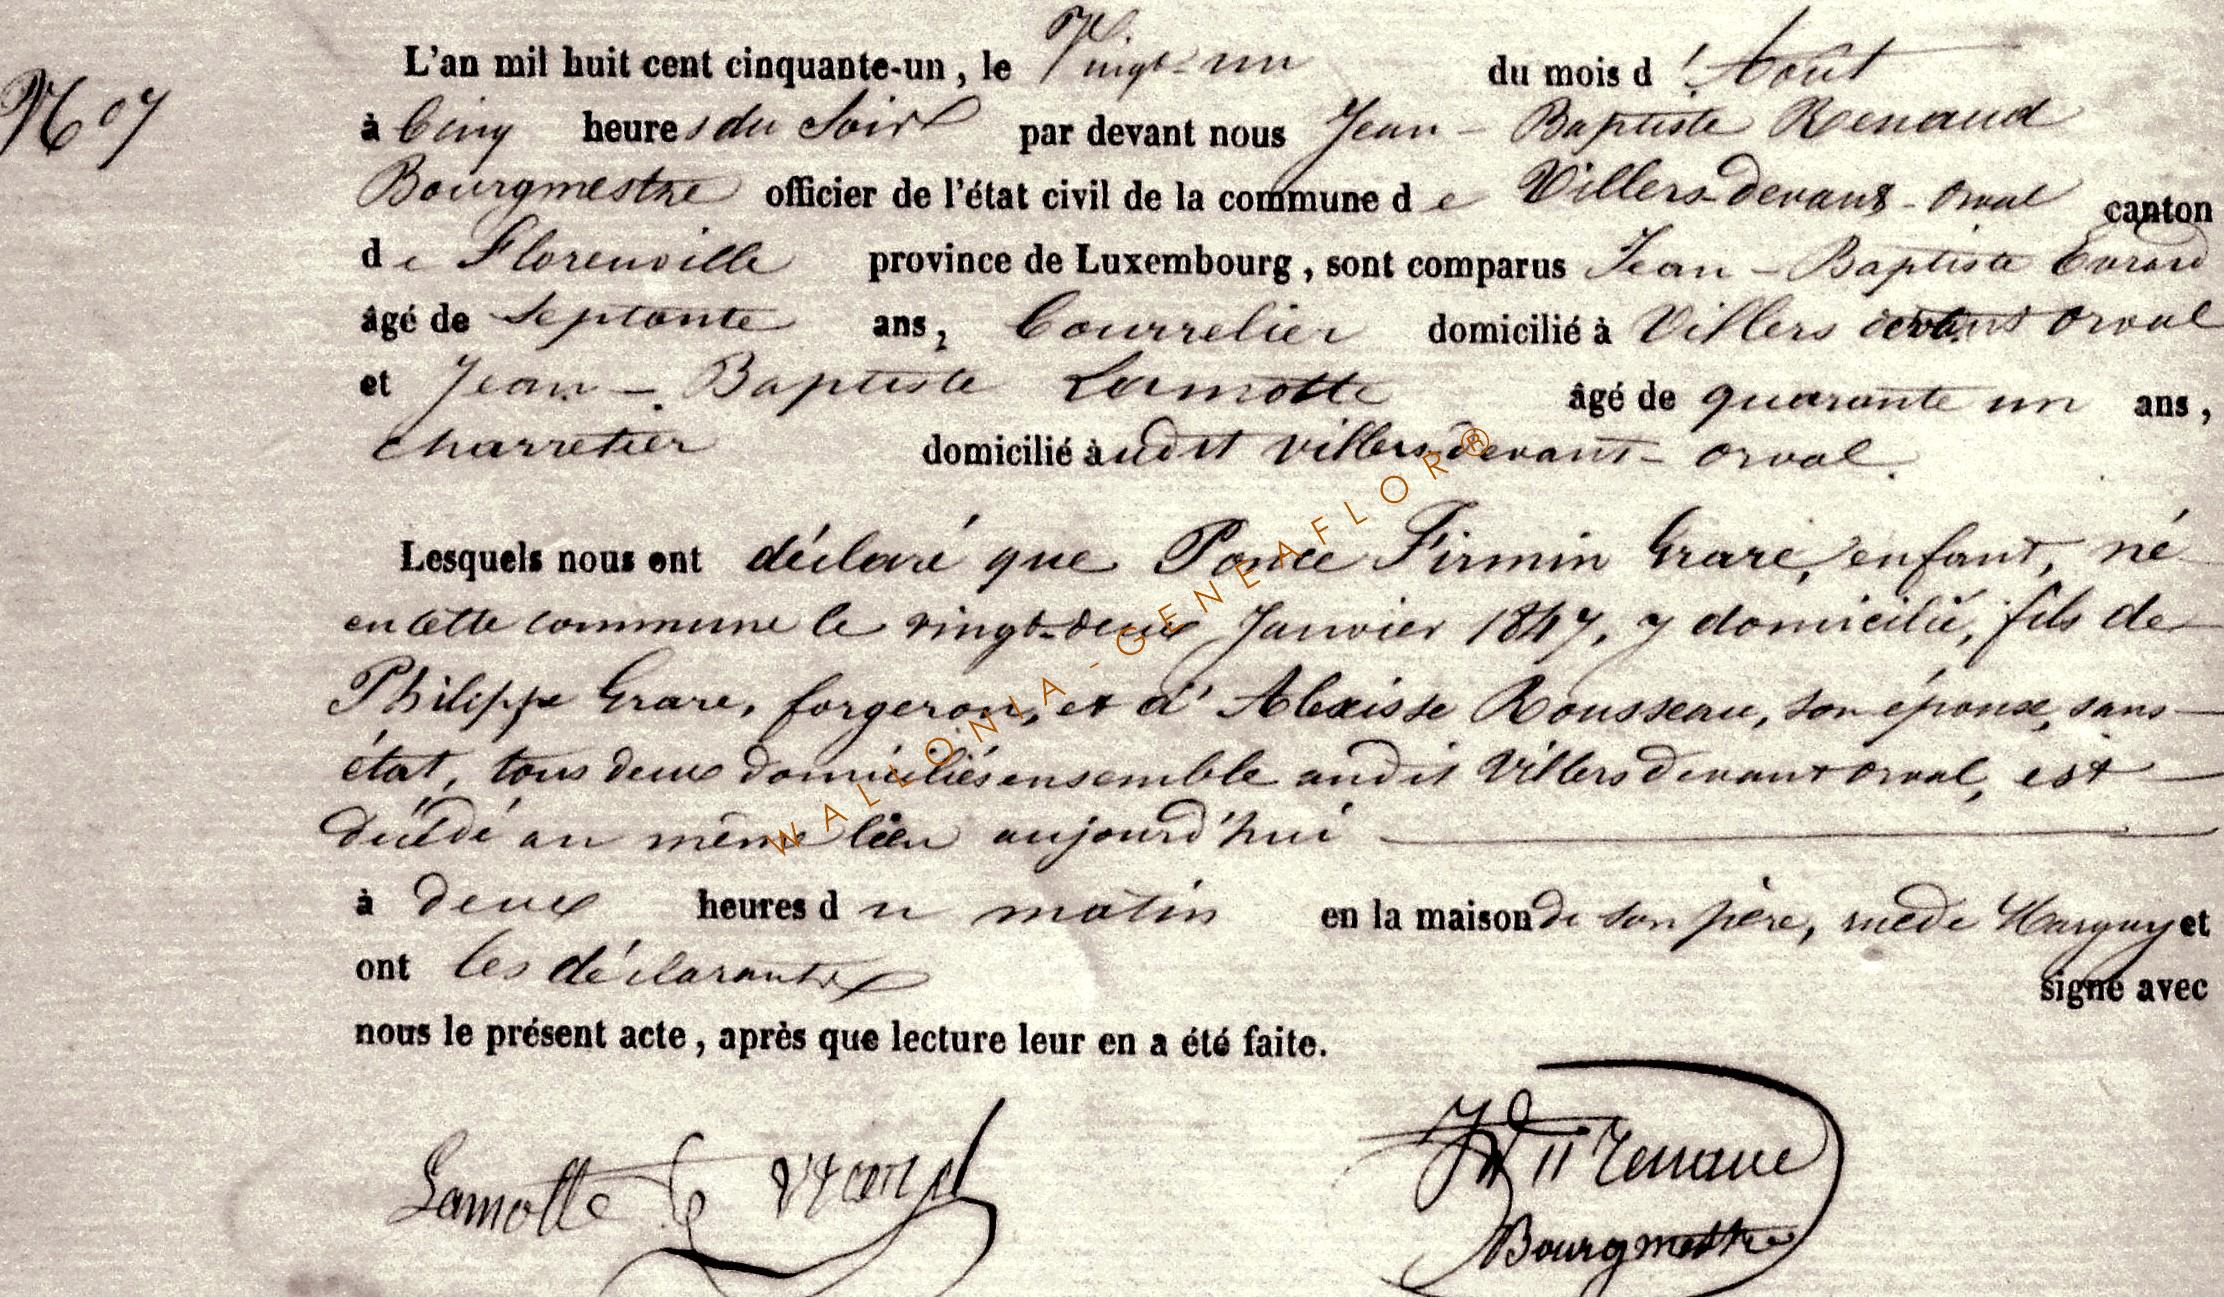 L'an mil huit cent cinquante-un, le Vingt-un du mois d'Août
N° 7
à Cinq heures du Soir par devant nous Jean-Baptiste Renaud
Bourgmestre officier de l'état civil de la commune de Villers-devant-Orval canton
de Florenville province de Luxembourg, sont comparus Jean-Baptiste Evrard
âgé de Septante ans, Courrelier domicilié à Villers devant Orval
et Jean-Baptiste Lamotte âgé de quarante un ans,
charretier domicilié audit villers-devant-orval.
Lesquels nous ont déclaré que Ponce Firmin Grare, enfant, né
en cette commune le vingt-deux Janvier 1847, y domicilié, fils de
Philippe Grare, forgeron, et d'Alexisse Rousseau, son épouse, sans
état, tous deux domiciliés ensemble audit Villers devant orval, est
décédé au même lieu aujourd'hui
à deux heures du matin en la maison de son père, rue de Marguy et
ont les déclarants signé avec
nous le présent acte, après que lecture leur en a été faite.
Lamotte
Bourgmestre
WALLONIA-GENEAFLOR®